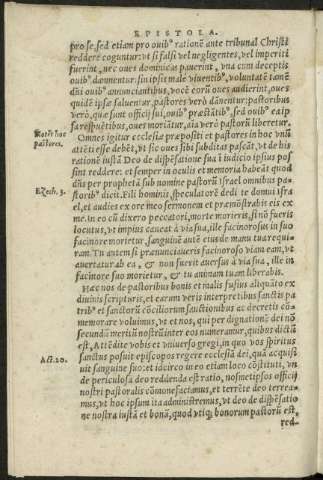 EPISTOLA.
pro se, sed etiam pro ouibº rationē ante tribunal Christi
reddere coguntur: vt si falsi vel negligentes, vel imperiti
fuerint, nec oues dominicas pauerint, vna cum deceptis
ouibº dānentur: sin ipsi male viuentibº, voluntatē tamē
dñi ouibº annunciantibus, vocē eorū oues audierint, oues
quidē ipsæ saluentur, pastores verò dānentur: pastoribus
verò, quæ sunt officij sui, ouibº præstātibº, sed ouibº ea ip
sa respuētibus, oues moriātur, aīa verò pastorū liberetur.
Omnes igitur ecclesiæ præpositi et pastores in hoc vnū
attēti esse debēt, vt sic oues sibi subditas pascāt, vt de his
rationē iustā Deo de dispēsatione sua ī iudicio ipsius pos
sint reddere: et semper in oculis et memoria habeāt quod
dñs per prophetā sub nomine pastorū Israel omnibus pa-
storibº dicit. Fili hominis, speculatorē dedi te domui isra
el, et audies ex ore meo sermonem et prænūtiabis eis ex
me. In eo cū dixero peccatori, morte morieris, si nō fueris
locutus, vt impius caueat à via sua, ille facinorosus in suo
facinore morietur, sanguinē autē eius de manu tua requi-
ram. Tu autem si pranunciaueris facinoroso viam eam, vt
auertatur ab ea, & non fuerit auersus à via sua, ille in
facinore suo morietur, & tu animam tuam liberabis.
Hæc nos de pastoribus bonis et malis fusius aliquāto ex
diuinis scripturis, et earum veris interpretibus sanctis pa
tribº et sanctorū conciliorum sanctionibus ac decretis cō-
memorare voluimus, vt et nos, qui per dignationē dei nō
secundū meritū nostrū inter eos numeramur, quibus dictū
est, Attēdite vobis et vniuerso gregi, in quo vos spiritus
sanctus posuit episcopos regere ecclesiā dei, quā acquisi
uit sanguine suo: et idcirco in eo etiam loco cōstituti, vn
de periculosa deo reddenda est ratio, nosmetipsos officij
nostri pastoralis cōmonefaciamus, et terrēte deo terrea-
mus, vt hoc ipsum ita administremus, vt deo de dispēsatio
ne nostra iustā et bonā, quod vtiq; bonorum pastorū est,
red-
Notēt hoc
pastores.
Ezech. 3.
Act. 20.